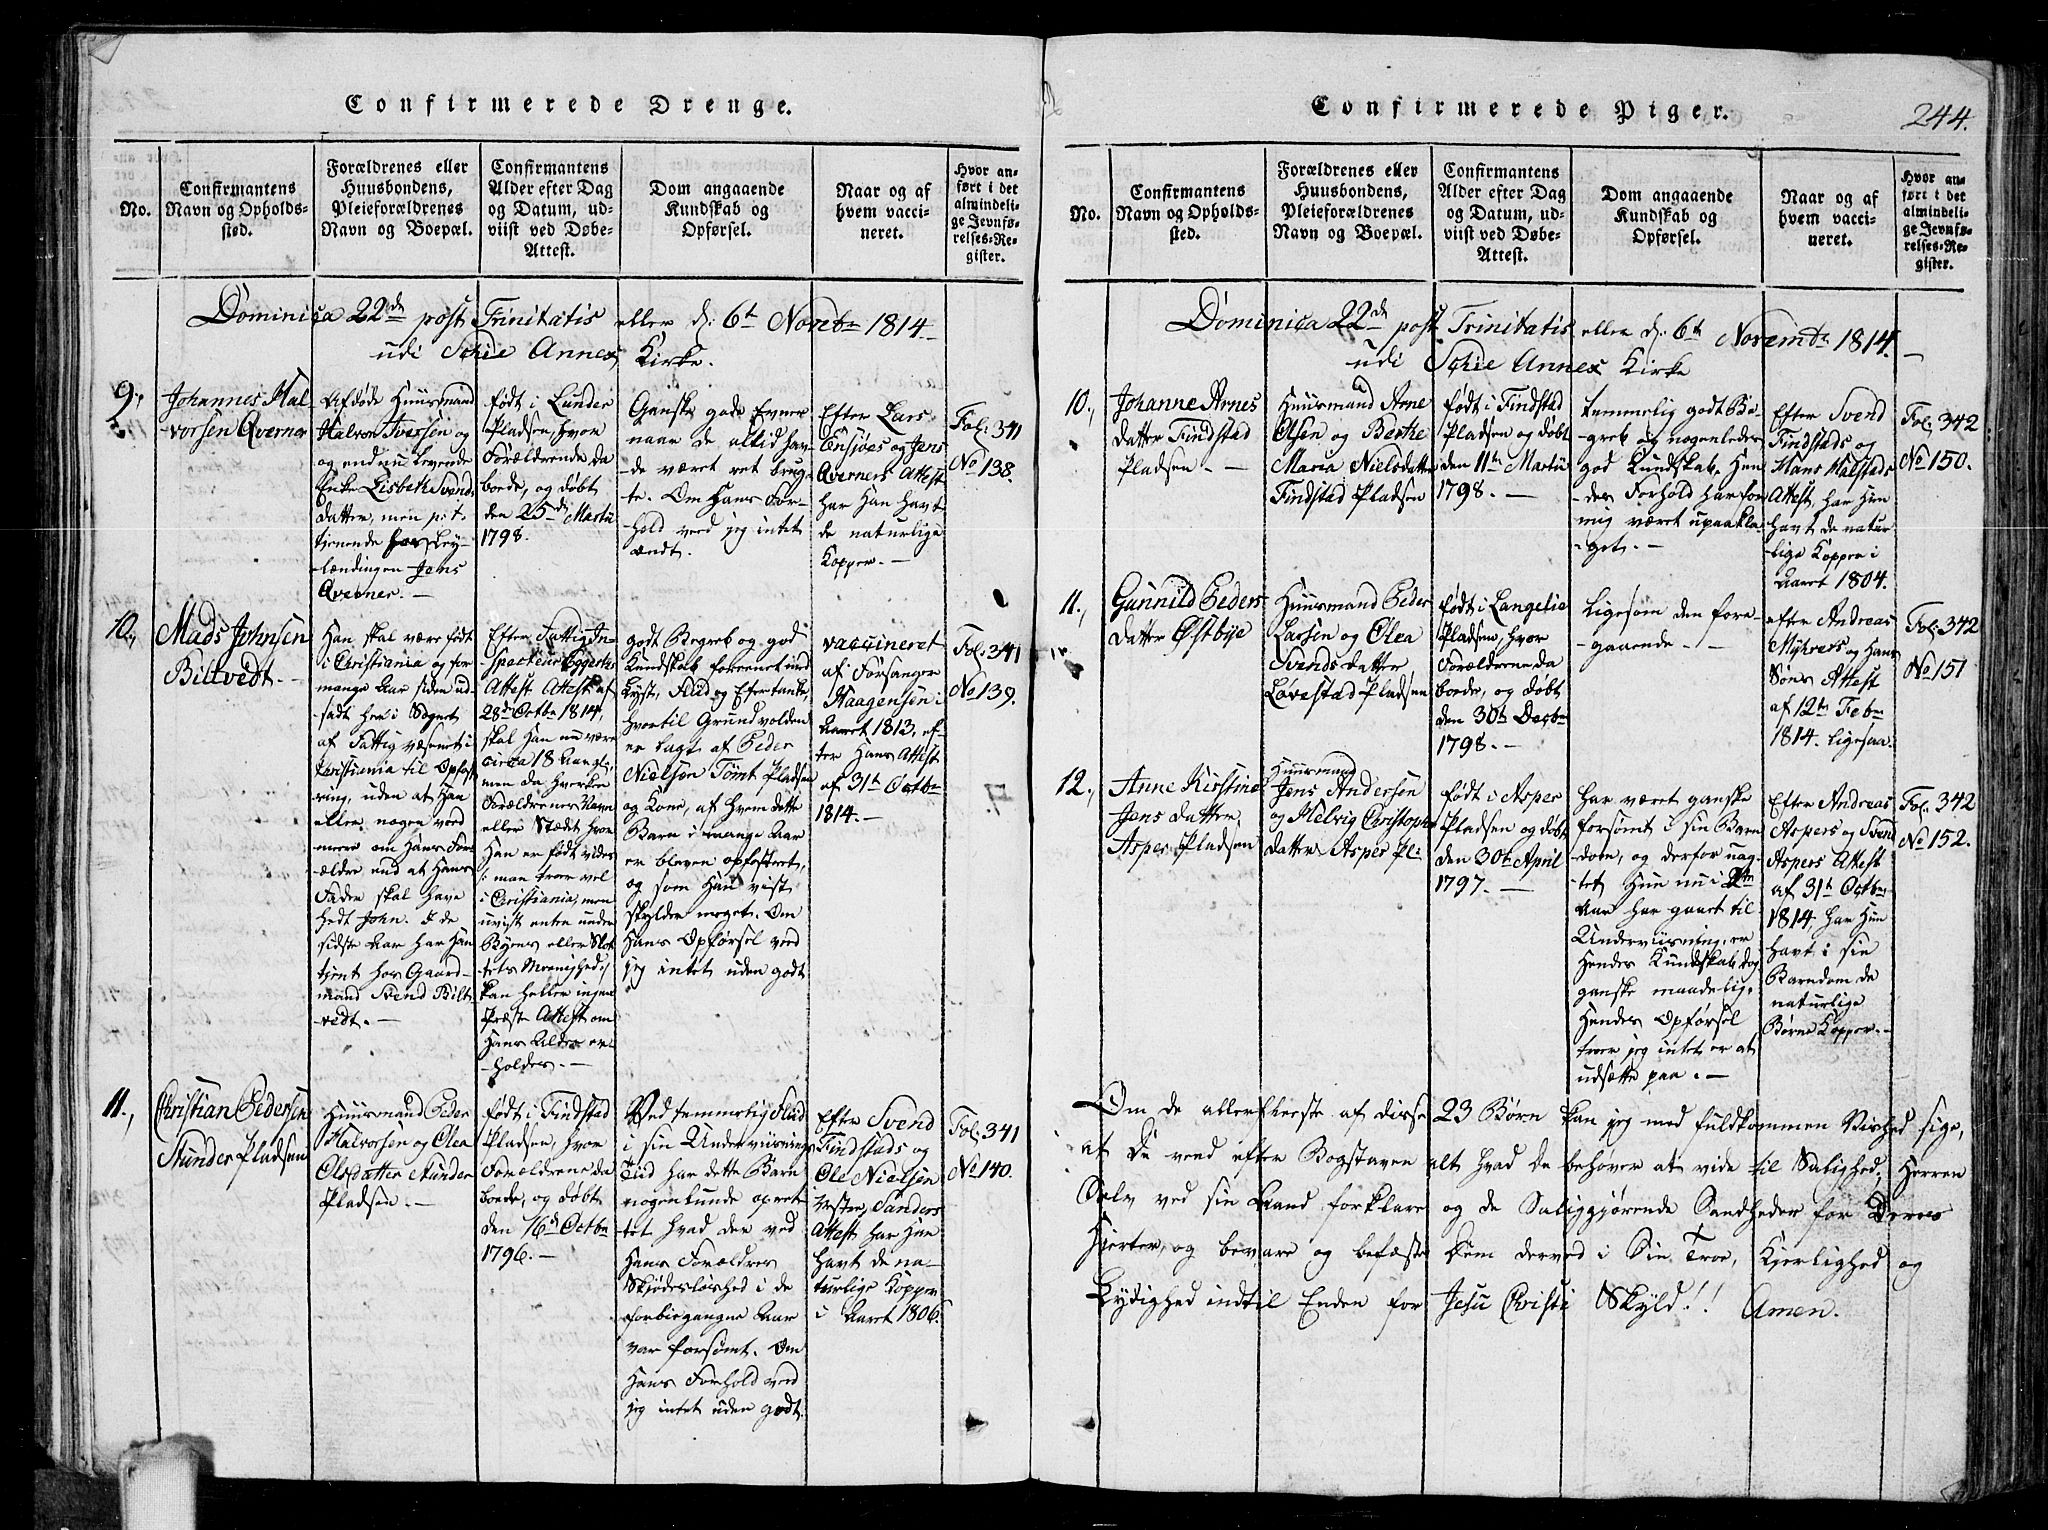 Confirmerede Drenge.
No.
Confirmantens
Navn og Opholds-
sted.
Forældrenes eller
Huusbondens,
Pleieforældrenes
Navn og Boepæl.
Confirmantens
Alder efter Dag
og Datum, ud-
viist ved Døbe-
Attest.
Dom angaaende
Kundskab og
Opførsel.
Naar og af
hvem vacci-
neret.
Hvor an-
ført i det
almindeli-
ge Jevnfø-
relses-Re-
gister.
Dominica 22de post Trinitatis eller d: 6te Novbr 1814.
udi Schie Annex Kirke.
9.,
Johannes Hal-
vorsen Qverner
Afdøde Huusmand
Halvor Iversen og
og endnu levende
Enke Lisbeth Svends
datter, men p: t:
tienende hos Ley-
lændingen Jens
Qverner. –
født i Lunder
Pladsen, hvor
Forældrene da
boede, og døbt
den 25de Martii
1798.
Ganske gode Evner
naar de altid hav-
de været ret brug-
te. Om Hans For-
hold veed jeg intet
ondt.
Efter Lars
Ensjøes og Jens
Qverners Attest
har Han havt
de naturlige
Kopper. –
Fol: 341
No 138.
10.,
Mads Johnsen
Biltvedt. –
Han skal være født
i Christiania og for
mange Aar siden ud-
sadt her i Sognet
af Fattigvæsenet i
Christiania til Opfost-
ring, uden at Han
eller nogen veed
meere om Hans For-
ældre end at Hans
Fader skal have
hedt John. I de
sidste Aar har Han
tient hos Gaard-
mand Svend Bilt-
vedt. –
Efter Fattig In-
specteur Eggertes
Attest Attest af
28de Octbr 1814,
skal Han nu være
circa 18 Aar gl:
men da hverken
Forældrenes Navn
eller Stædet hvor
Han er født vides
/: man troer vel
i Christiania, men
uvist enten under
Byens eller Slot-
tets Meenighed :/
kan heller ingen
Præste Attest om
Hans Alder er-
holdes. –
godt Begreb og god
Kundskab foreenet med
Lyst, Fliid og Eftertanke,
hvortil Grundvolden
er lagt af Peder
Nielsen Tømt Pladsen
og Kone, af hvem dette
Barn i mange Aar
er bleven opfostret,
og som Han vist
skylder meget. Om
Hans Opførsel veed
jeg intet uden godt
vaccineret
af Forsanger
Haagensen i
Aaret 1813, ef-
ter Hans Attest
af 31te Octbr
1814. –
Fol: 341
No 139.
11.,
Christian Pedersen
Stunder Pladsen
Huusmand Peder
Halvorsen og Olea
Olsdatter Stunder
Pladsen. –
født i Findstad
Pladsen, hvor
Forældrene da
boede, og døbt
den 16de Octbr
1796. –
Ved temmelig Fliid
i sin Underviisnings
Tiid har dette Barn
nogenlunde oprettet
hvad der ved
Hans Forældres
Skjødesløshed i de
forbiegangne Aar
var forsømt. Om
Hans Forhold veed
jeg intet uden godt.
Efter Svend
Findstads og
Ole Nielsen
Sanders
Attest har Han
havt de na-
turlige Kopper
i Aaret 1806.
Fol: 341
No 140.
Confirmerede Piger.
244.
No.
Confirmantens
Navn og Opholds-
sted.
Forældrenes eller
Huusbondens,
Pleieforældrenes
Navn og Boepæl.
Confirmantens
Alder efter Dag
og Datum, ud-
viist ved Døbe-
Attest.
Dom angaaende
Kundskab og
Opførsel.
Naar og af
hvem vacci-
neret.
Hvor an-
ført i det
almindeli-
ge Jevnfø-
relses-Re-
gister.
Dominica 22de post Trinitatis eller d: 6te Novembr 1814.
udi Schie Annex Kirke
10.,
Johanne Arnes
datter Findstad
Pladsen –
Huusmand Arne
Olsen og Berthe
Maria Nielsdatter
Findstad Pladsen
født i Findstad
Pladsen og døbt
den 11te Martii
1798. –
temmelig godt Be-
greb og nogenledes
god Kundskab. Hen-
des Forhold har for
mig været upaakla-
get. –
Efter Svend
Findstads og
Hans Kalstads
Attest, har Hun
havt de natur-
lige Kopper i
Aaret 1804.
Fol: 342
No 150.
11.,
Gunnild Peders
datter Østbye
Huusmand Peder
Larsen og Olea
Svends datter
Løvestad Pladsen
født i Langelie
Pladsen, hvor
Forældrene da
boede, og døbt
den 30te Decbr
1798. –
Ligesom den fore-
gaaende. –
efter Andreas
Myhrers og Hans
Søns Attest
af 12te Febr
1814. ligesaa.
Fol: 342
No 151
12.,
Anne Kirstine
Jens datter,
Asper Pladsen
Huusmand
Jens Andersen
og Helvig Christophers
datter Asper Pl:
født i Asper
Pladsen og døbt
den 30te April
1797. –
har været ganske
forsømt i sin Barn-
dom, og derfor uag-
tet Hun nu i 2den
Aar har gaaet til
Underviisning, er
Hendes Kundskab dog
ganske maadelig.
Hendes Opførsel
troer jeg intet er at
udsætte paa. –
Efter Andreas
Aspers og Svend
Aspers Attest
af 31te Octbr
1814, har Hun
havt i sin
Barndom de
naturlige
Børne Kopper. –
Fol: 342
No 152.
Om de allerfleeste af disse 23 Børn kan jeg med fuldkommen Vished sige,
at De veed efter Bogstaven alt hvad De behøver at vide til Salighed; Herren
Selv ved sin Aand forklare og de Saliggjørende Sandheder for Deres
Hjerter, og bevare og befæste Dem derved i Sin Troe, Kjerlighed og
Lydighed indtil Enden for Jesu Christi Skyld!! Amen.